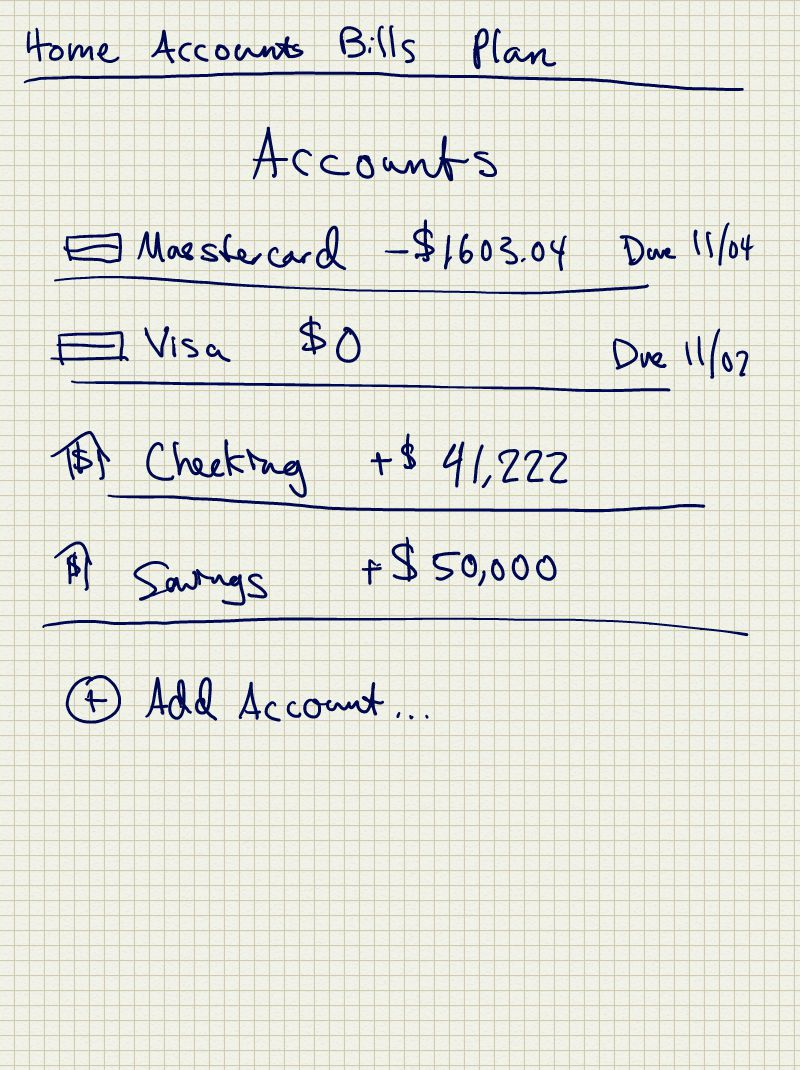 Home Accounts Bills Plan
Accounts
Masstercard -$1603.04 Due 11/04
Visa $0 Due 11/07
$ Checking +$ 41,222
$ Savings +$ 50,000
+ Add Account...